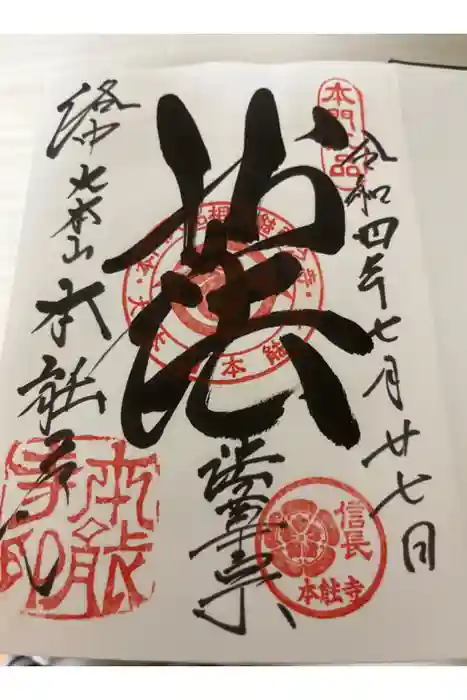 本門八品
令和四年七月廿七日
妙法
法華宗
信長
本能寺
洛中
大本山
本能寺
本能
寺印